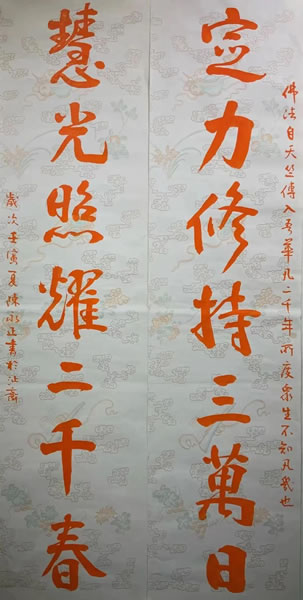 佛法自天竺傳入吾華凡二千年所度眾生不知凡幾也
定力修持三萬日
慧光照耀二千春
歲次壬寅夏陳永正書於沚齋